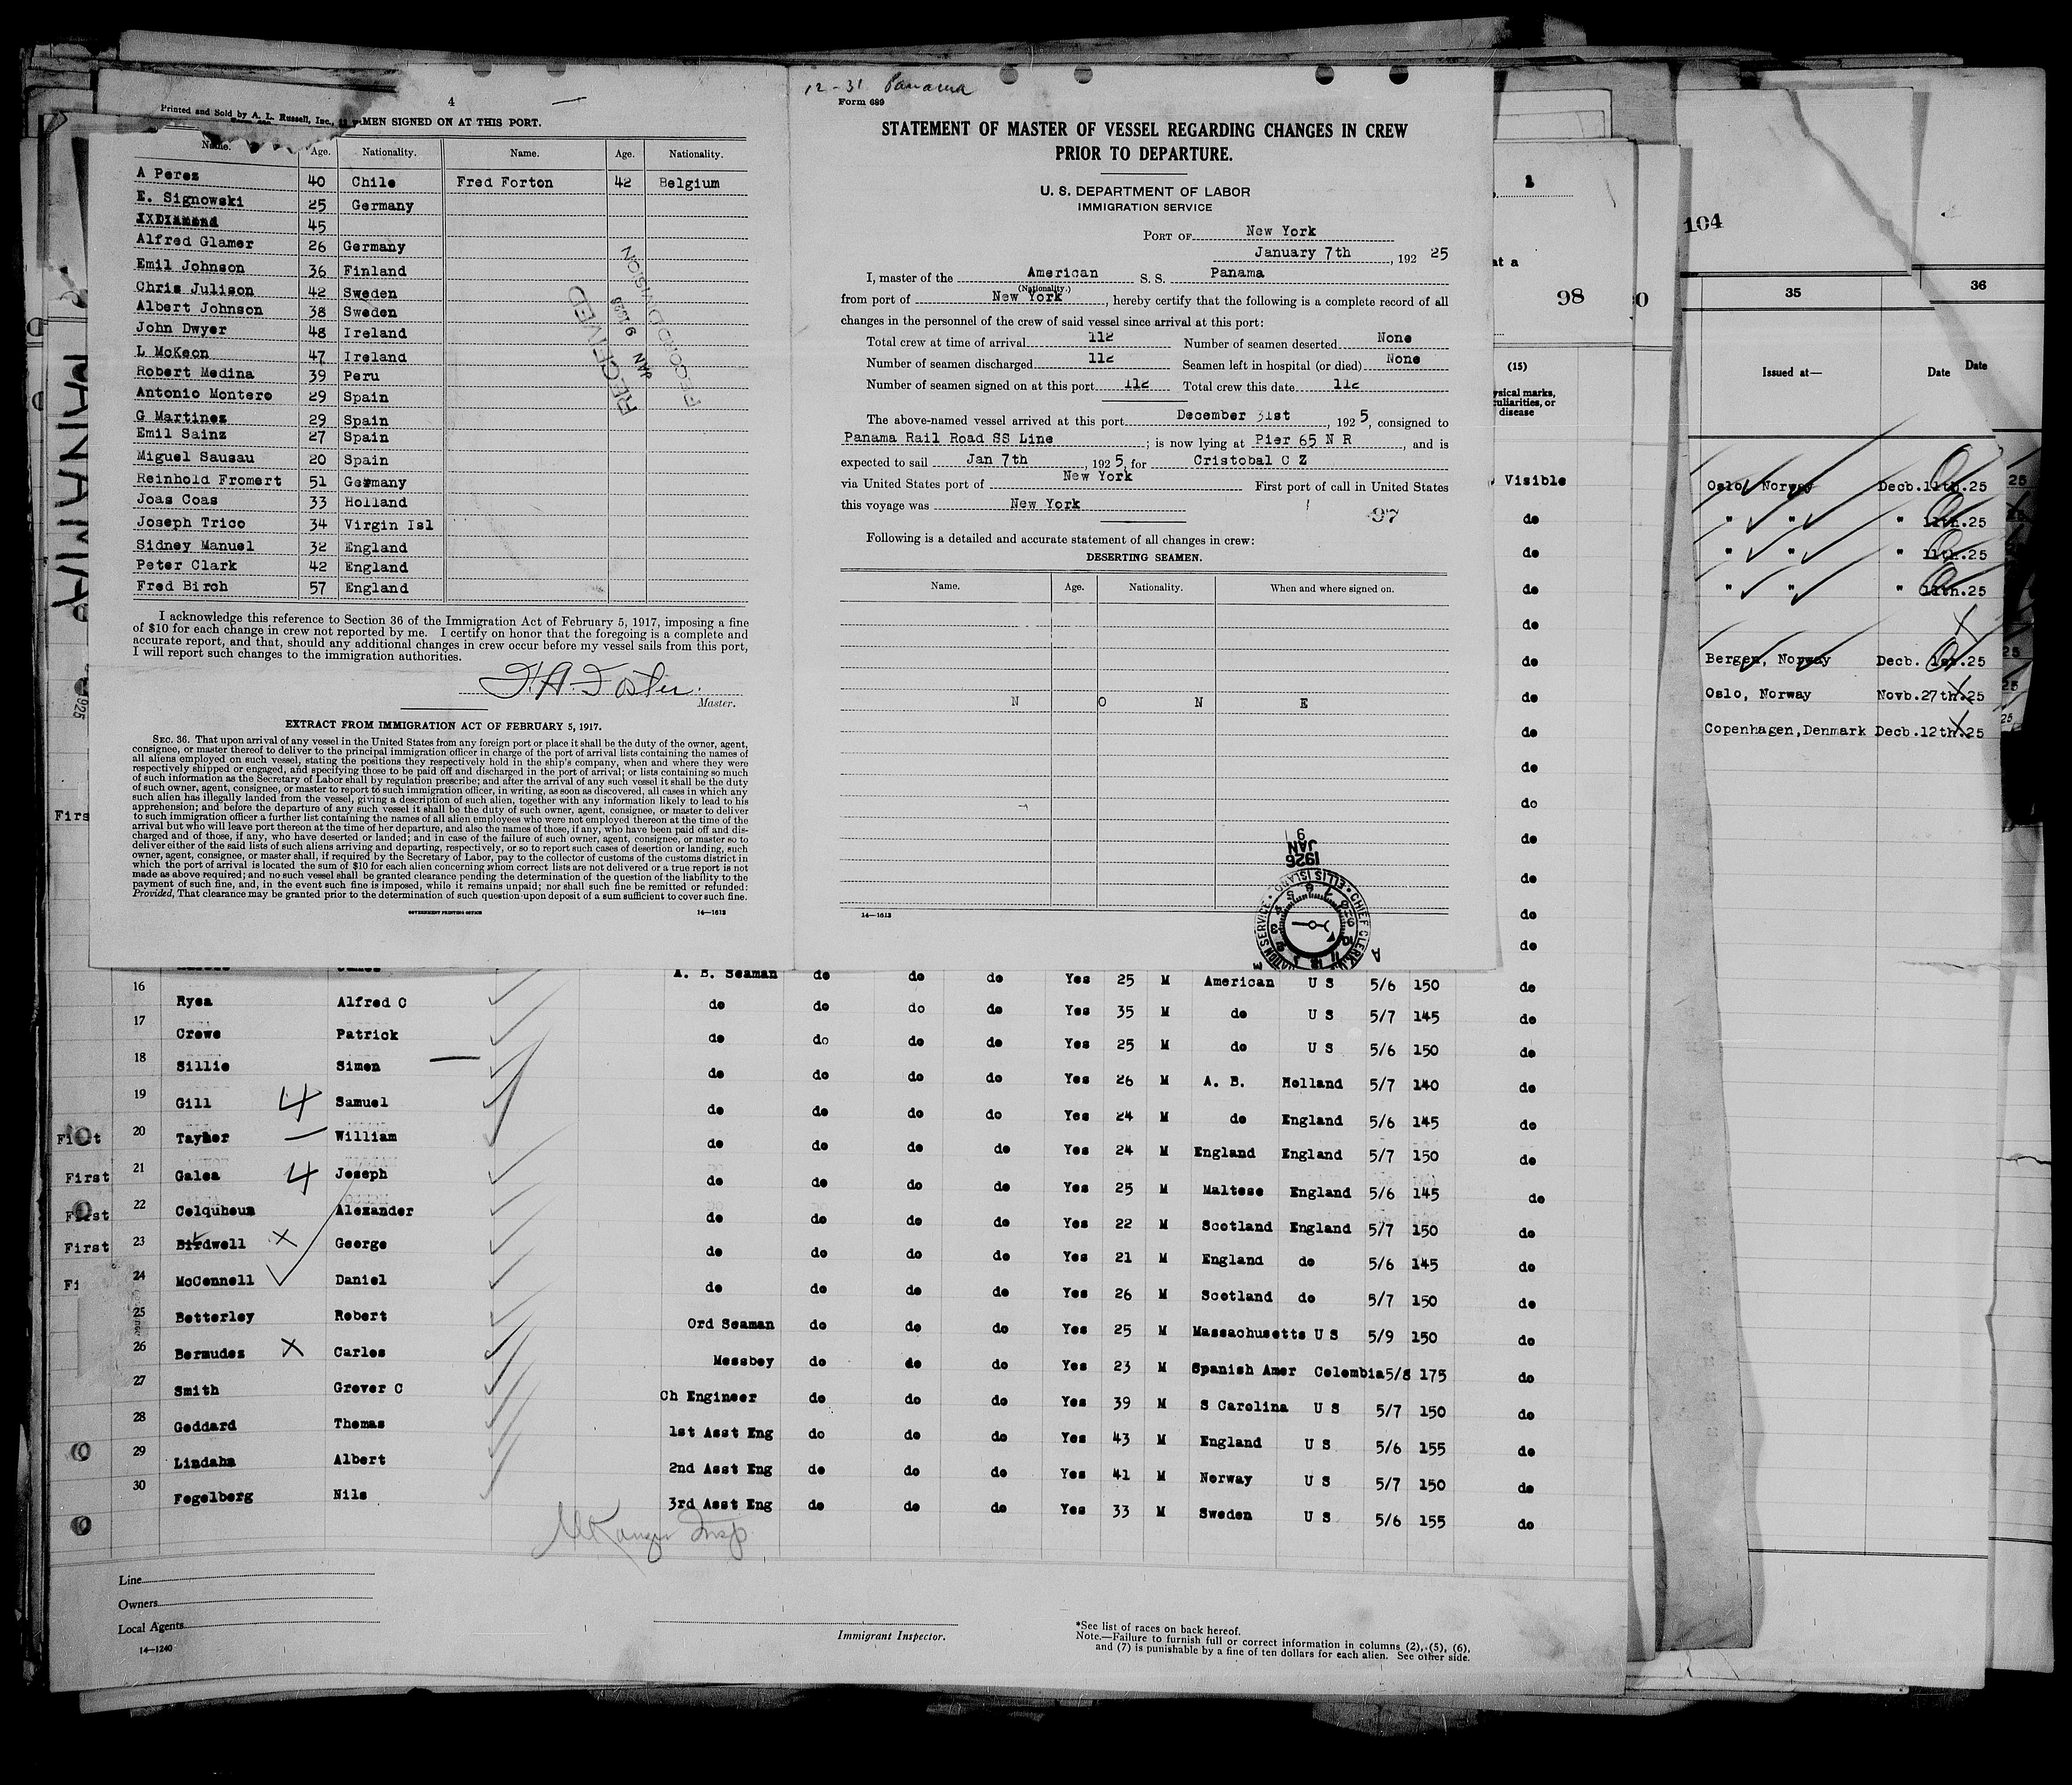 4
Printed and Sold by A. L. Russell, Inc.,
MEN SIGNED ON AT THIS PORT.
Name. Age. Nationality. Name. Age. Nationality.
A Perez 40 Chile Fred Forton 42 Belgium
E. Signowski 25 Germany
45
Alfred Glamer 26 Germany
Emil Johnson 36 Finland
Chris Julison 42 Sweden
Albert Johnson 38 Sweden
John Dwyer 48 Ireland
L McKeon 47 Ireland
Robert Medina 39 Peru
Antonio Montero 29 Spain
G Martinez 29 Spain
Emil Sainz 27 Spain
Miguel Sausau 20 Spain
Reinhold Fromert 51 Germany
Joas Coas 33 Holland
Joseph Trico 34 Virgin Isl
Sidney Manuel 32 England
Peter Clark 42 England
Fred Birch 57 England
RECEIVED
JAN 9 1926
RECORD DIVISION
I acknowledge this reference to Section 36 of the Immigration Act of February 5, 1917, imposing a fine
of $10 for each change in crew not reported by me. I certify on honor that the foregoing is a complete and
accurate report, and that, should any additional changes in crew occur before my vessel sails from this port,
I will report such changes to the immigration authorities.
Foster
Master.
EXTRACT FROM IMMIGRATION ACT OF FEBRUARY 5, 1917.
SEC. 36. That upon arrival of any vessel in the United States from any foreign port or place it shall be the duty of the owner, agent,
consignee, or master thereof to deliver to the principal immigration officer in charge of the port of arrival lists containing the names of
all aliens employed on such vessel, stating the positions they respectively hold in the ship's company, when and where they were
respectively shipped or engaged, and specifying those to be paid off and discharged in the port of arrival; or lists containing so much
of such information as the Secretary of Labor shall by regulation prescribe; and after the arrival of any such vessel it shall be the duty
of such owner, agent, consignee, or master to report to such immigration officer, in writing, as soon as discovered, all cases in which any
such alien has illegally landed from the vessel, giving a description of such alien, together with any information likely to lead to his
apprehension; and before the departure of any such vessel it shall be the duty of such owner, agent, consignee, or master to deliver
to such immigration officer a further list containing the names of all alien employees who were not employed thereon at the time of the
arrival but who will leave port thereon at the time of her departure, and also the names of those, if any, who have been paid off and dis-
charged and of those, if any, who have deserted or landed; and in case of the failure of such owner, agent, consignee, or master so to
deliver either of the said lists of such aliens arriving and departing, respectively, or so to report such cases of desertion or landing, such
owner, agent, consignee, or master shall, if required by the Secretary of Labor, pay to the collector of customs of the customs district in
which the port of arrival is located the sum of $10 for each alien concerning whom correct lists are not delivered or a true report is not
made as above required; and no such vessel shall be granted clearance pending the determination of the question of the liability to the
payment of such fine, and, in the event such fine is imposed, while it remains unpaid; nor shall such fine be remitted or refunded:
Provided, That clearance may be granted prior to the determination of such question upon deposit of a sum sufficient to cover such fine.
GOVERNMENT PRINTING OFFICE 14—1613
12-31 Panama
Form 689
STATEMENT OF MASTER OF VESSEL REGARDING CHANGES IN CREW
PRIOR TO DEPARTURE.
U. S. DEPARTMENT OF LABOR
IMMIGRATION SERVICE
PORT OF New York
January 7th, 192 25
I, master of the American S. S. Panama
(Nationality.)
from port of New York, hereby certify that the following is a complete record of all
changes in the personnel of the crew of said vessel since arrival at this port:
Total crew at time of arrival 112 Number of seamen deserted None
Number of seamen discharged 112 Seamen left in hospital (or died) None
Number of seamen signed on at this port 112 Total crew this date 112
The above-named vessel arrived at this port December 31st, 192 5, consigned to
Panama Rail Road SS Line; is now lying at Pier 65 N R, and is
expected to sail Jan 7th, 192 5, for Cristobal C Z
via United States port of New York First port of call in United States
this voyage was New York
97
Following is a detailed and accurate statement of all changes in crew:
DESERTING SEAMEN.
Name. Age. Nationality. When and where signed on.
N O N E
14—1613
9
JAN
1926
CHIEF CLERK
ELLIS ISLAND
PANAMA
1925
Firs
1
at a
98
0
(15)
ysical marks,
culiarities, or
disease
Visible
do
do
do
do
do
do
do
do
do
do
do
do
do
104
35 36
Issued at— Date Date
Oslo, Norway Decb.11th.25
" " " 11th.25
" " " 11th.25
" " " 11th.25
Bergen, Norway Decb. 1st.25
Oslo, Norway Novb.27th.25
Copenhagen,Denmark Decb.12th.25
A. B. Seaman do do do Yes 25 M American U S 5/6 150 do
16 Ryea Alfred C do do do do Yes 35 M do U S 5/7 145 do
17 Crewe Patrick do do do do Yes 25 M do U S 5/6 150 do
18 Sillie Simon do do do do Yes 26 M A. B. Holland 5/7 140 do
19 Gill 4 Samuel do do do do Yes 24 M do England 5/6 145 do
First 20 Tayher William do do do do Yes 24 M England England 5/7 150 do
First 21 Galea 4 Joseph do do do do Yes 25 M Maltese England 5/6 145 do
First 22 Colquhoun Alexander do do do do Yes 22 M Scotland England 5/7 150 do
First 23 Birdwell X George do do do do Yes 21 M England do 5/6 145 do
Fi 24 McConnell Daniel do do do do Yes 26 M Scotland do 5/7 150 do
25 Betterley Robert Ord Seaman do do do Yes 25 M Massachusetts U S 5/9 150 do
26 Bermudez X Carlos Messboy do do do Yes 23 M Spanish Amer Colombia 5/8 175 do
27 Smith Grover C Ch Engineer do do do Yes 39 M S Carolina U S 5/7 150 do
28 Goddard Thomas 1st Asst Eng do do do Yes 43 M England U S 5/6 155 do
29 Lindahn Albert 2nd Asst Eng do do do Yes 41 M Norway U S 5/7 150 do
30 Fogelberg Nils 3rd Asst Eng do do do Yes 33 M Sweden U S 5/6 155 do
Insp
Line
Owners
Local Agents
14—1240
Immigrant Inspector.
*See list of races on back hereof.
Note.—Failure to furnish full or correct information in columns (2), (5), (6),
and (7) is punishable by a fine of ten dollars for each alien. See other side.